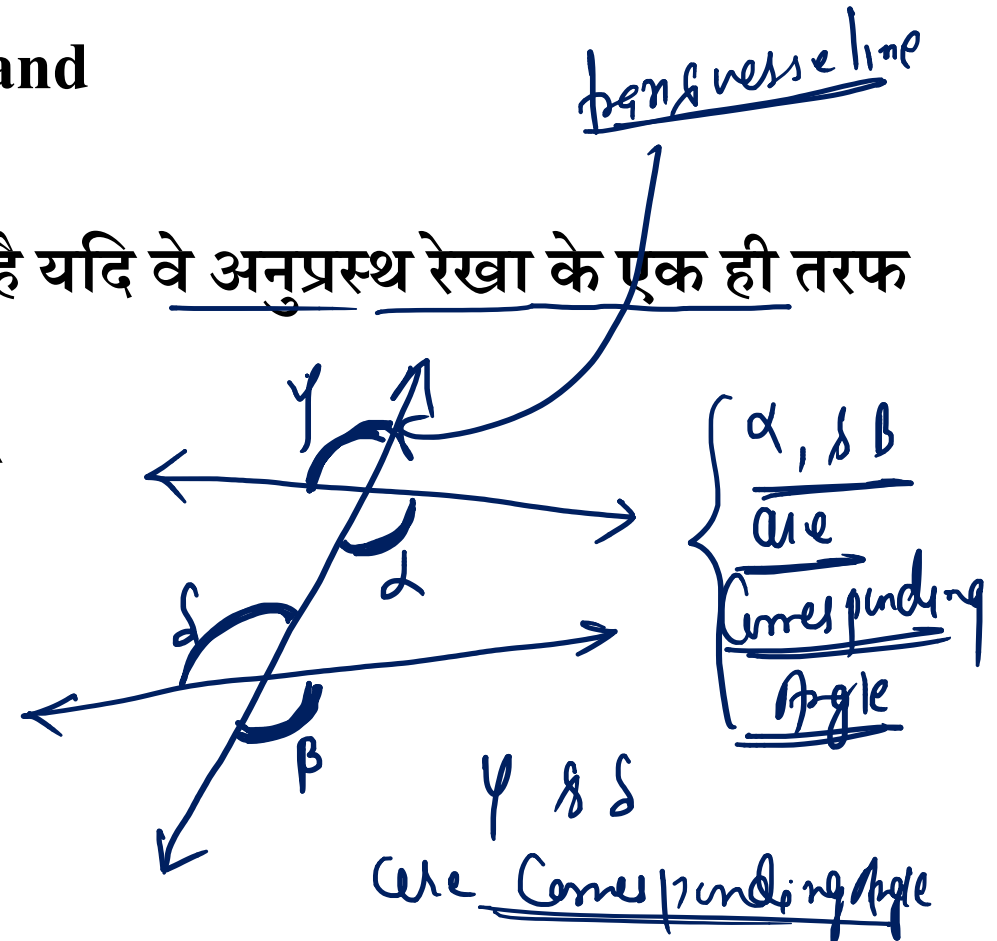 and
transverse line
है यदि वे अनुप्रस्थ रेखा के एक ही तरफ
γ
α
δ
β
α, & β
are
Corresponding
Angle
γ & δ
are Corresponding Angle